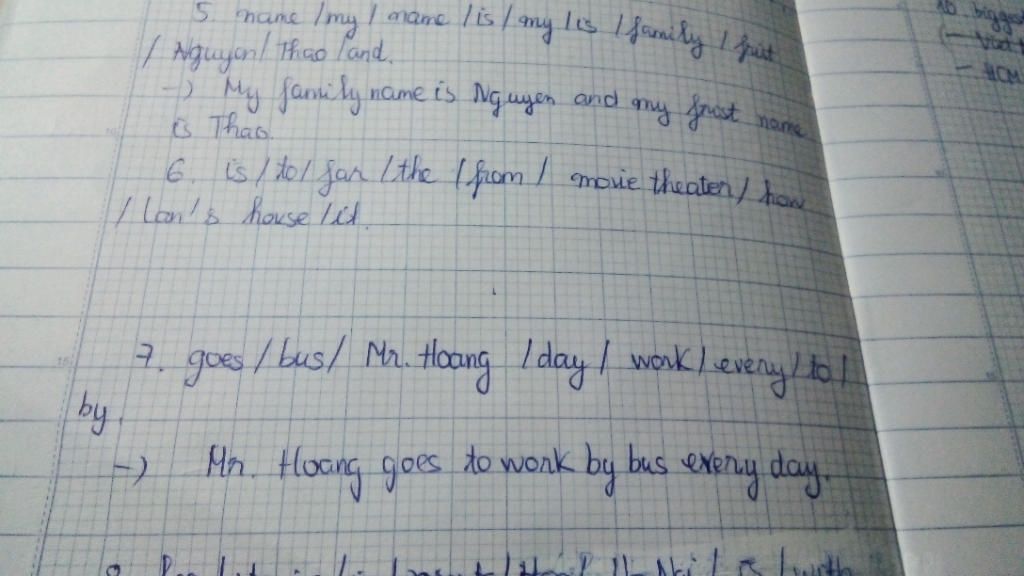 5. name / my / name / is / my / is / family / frist
/ Nguyen / Thao / and.
-) My family name is Nguyen and my frist name
is Thao.
6. is / to / far / the / from / movie theater / how
/ Lan's house / it.
7. goes / bus / Mr. Hoang / day / work / every / to /
by.
-) Mr. Hoang goes to work by bus every day.
10 biggest
- HCM